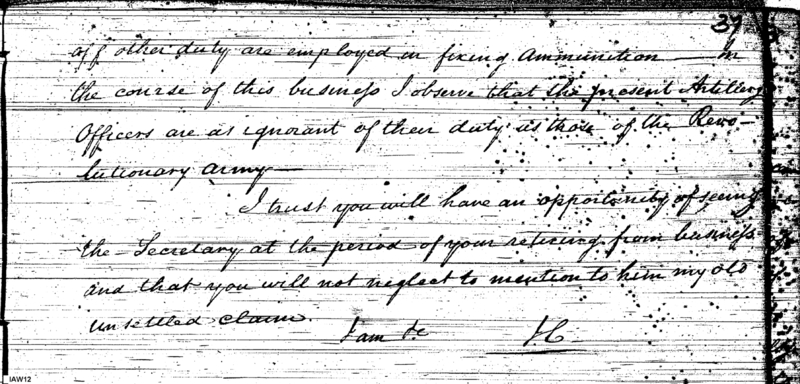 37
off other duty are employed in fixing Ammunition — In
the course of this business I observe that the present Artillery
Officers are as ignorant of their duty as those of the Revo-
lutionary army—
I trust you will have an opportunity of seeing
the Secretary at the period of your retiring from business
and that you will not neglect to mention to him my old
unsettled claim.
I am &c
IAW12